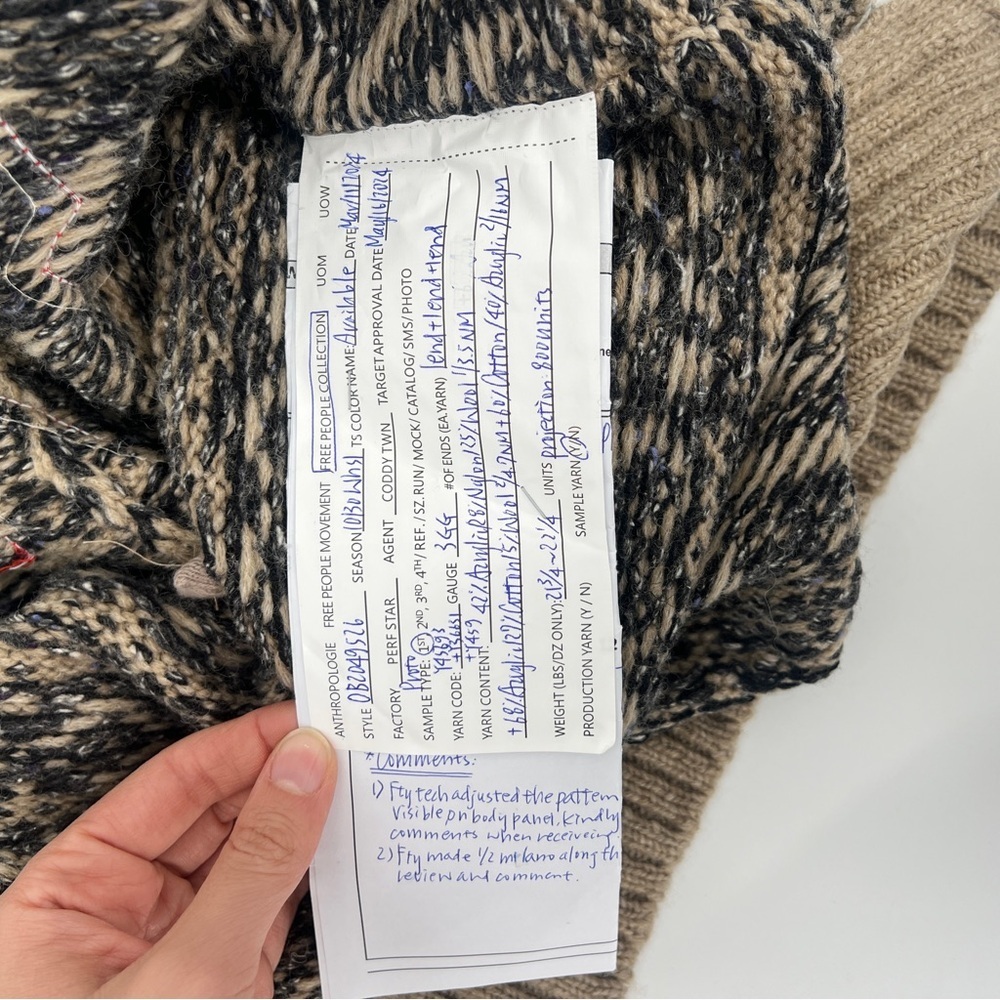 ANTHROPOLOGIE FREE PEOPLE MOVEMENT FREE PEOPLE COLLECTION UOM UOW
STYLE OB2049526 SEASON 1030 Whsl TS COLOR NAME: Available DATE Mar/11/2024
FACTORY PERF STAR AGENT CODDY TWN TARGET APPROVAL DATE May/16/2024
Proto
SAMPLE TYPE: 1ST 2ND, 3RD, 4TH / REF. / SZ. RUN / MOCK / CATALOG / SMS / PHOTO
YARN CODE: GAUGE 3GG #OF ENDS (EA.YARN) 1end+1end+1end
+Y459
YARN CONTENT: 42% Acrylic /3.5NM
+68%Acrylic /4.7NM+ Cotton/40%Acrylic 2/16NM
WEIGHT (LBS/DZ ONLY): 21 3/4 ~ 22 1/4 UNITS projection: 800units
PRODUCTION YARN (Y / N) SAMPLE YARN (Y/N)
*Comments:
1) Fty tech adjusted the pattern
visible on body panel. Kindly
comments when receiveing
2) Fty made 1/2 milano along th
review and comment.